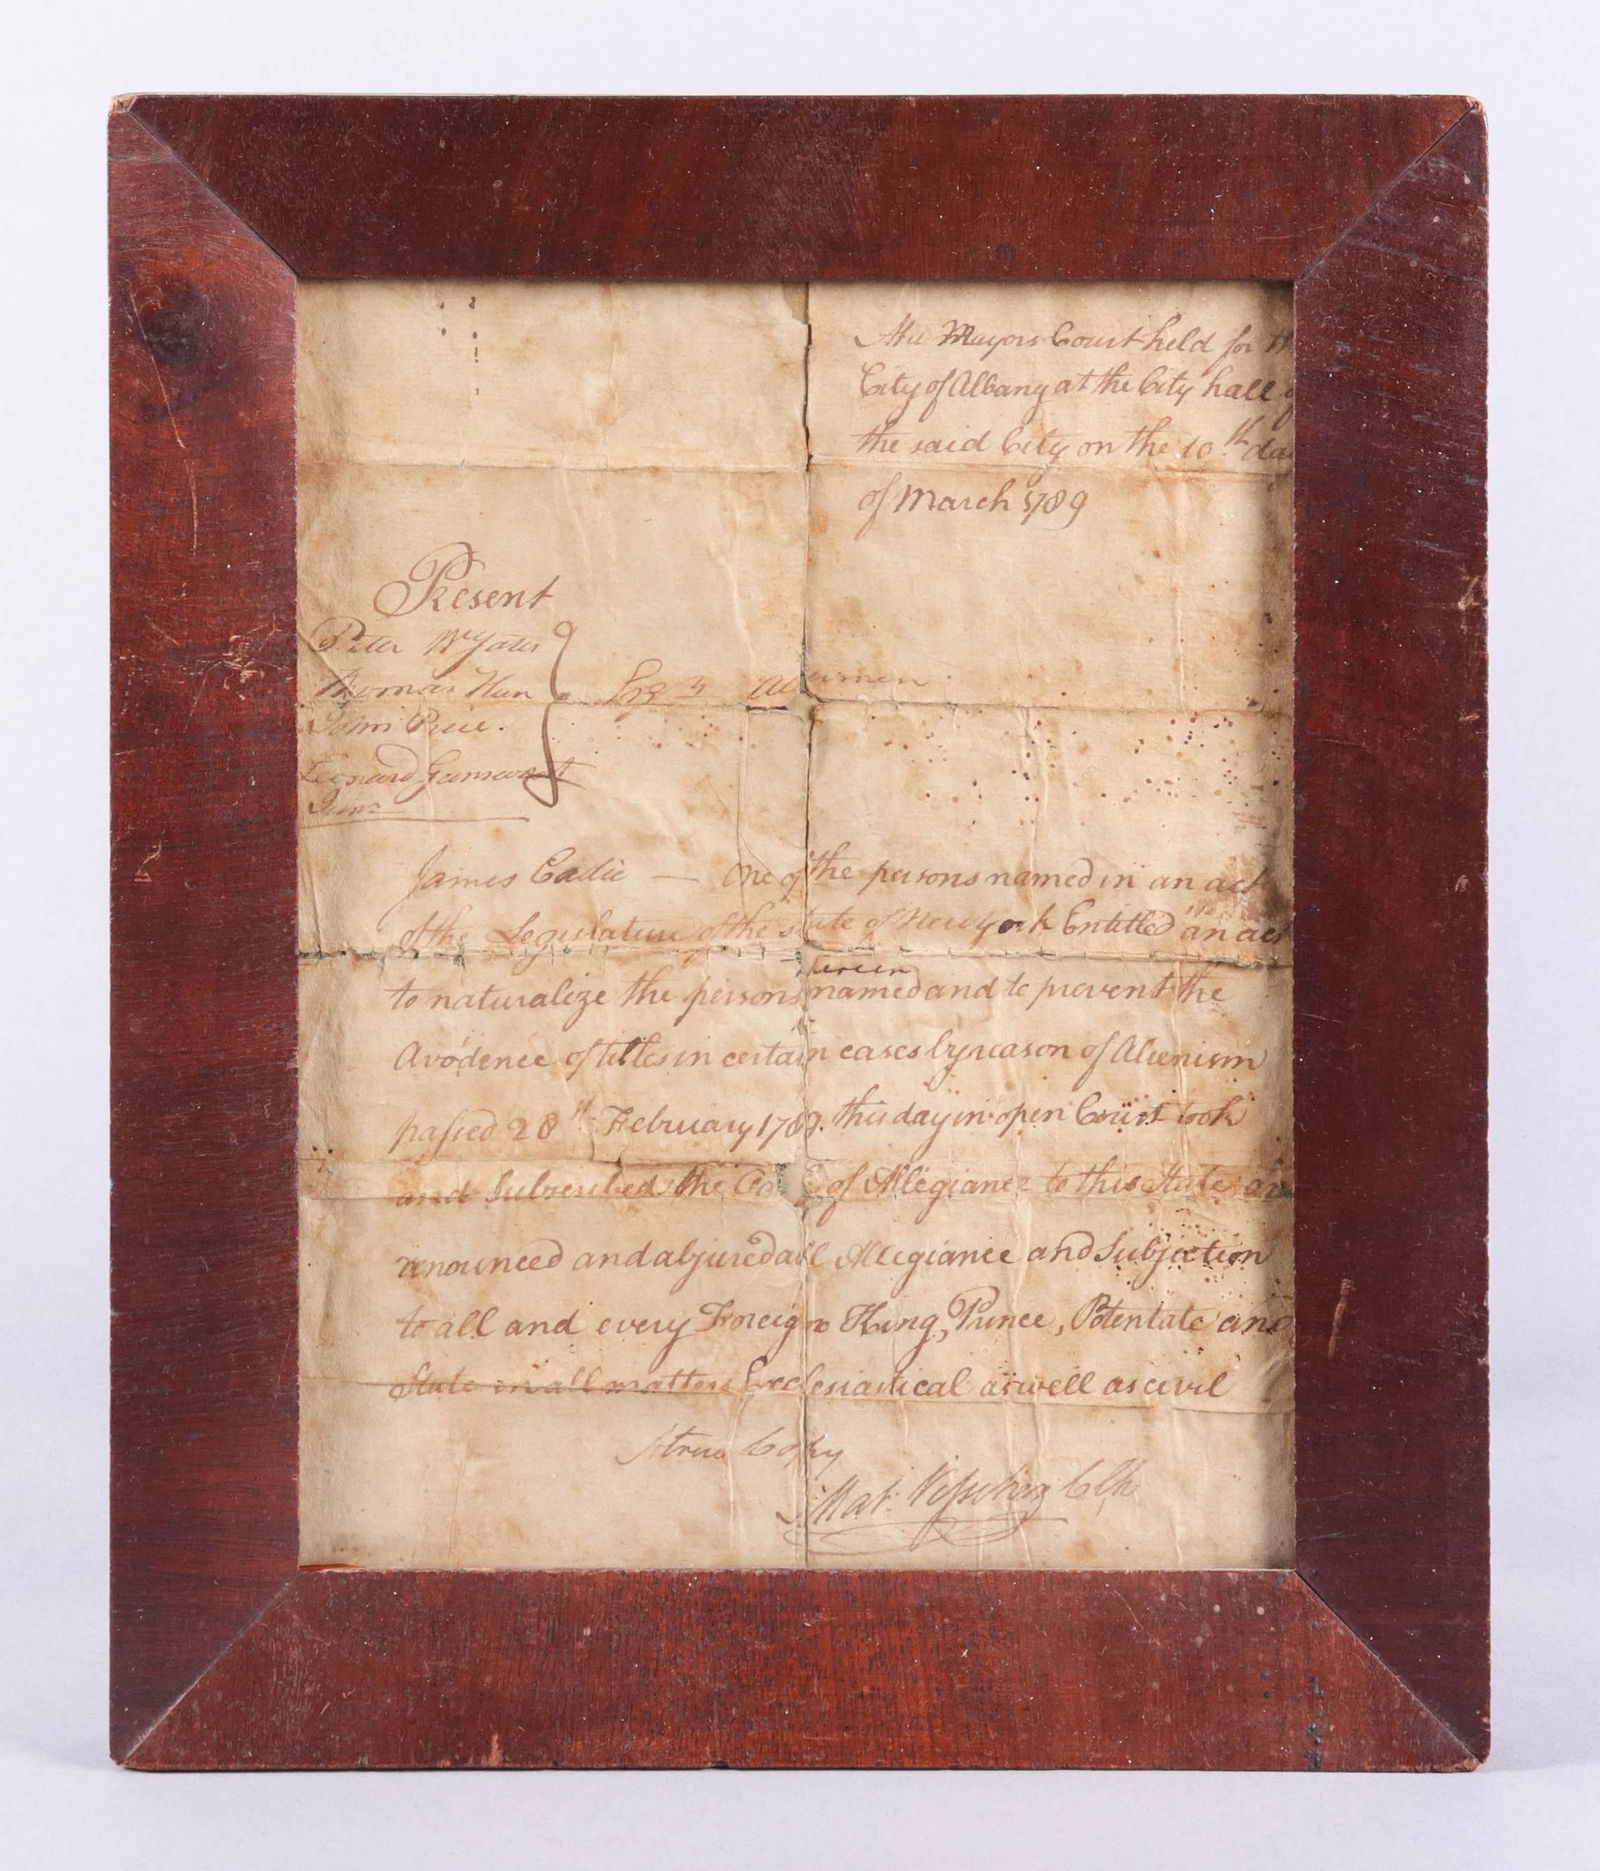 Att a Mayors Court held for th
City of Albany at the City hall of
the said City on the 10th day
of March 1789
Present
Peter W Yates
Thomas Hun Esqrs Aldermen
John Price.
Leonard Gansevoort
Junr
James Cadie — One of the persons named in an act
of the Legislature of the state of New York Entitled "an act
therein
to naturalize the persons named and to prevent the
Avodence of titles in certain cases by reason of Alienism
passed 28th February 1789. this day in open Court took
and Subscribed the Oa of Allegiance to this State an
renounced and abjured all Allegiance and Subjection
to all and every Foreign King, Prince, Potentate and
State in all matters Ecclesiastical as well as civil
A true Copy
Mat: Visscher Clk